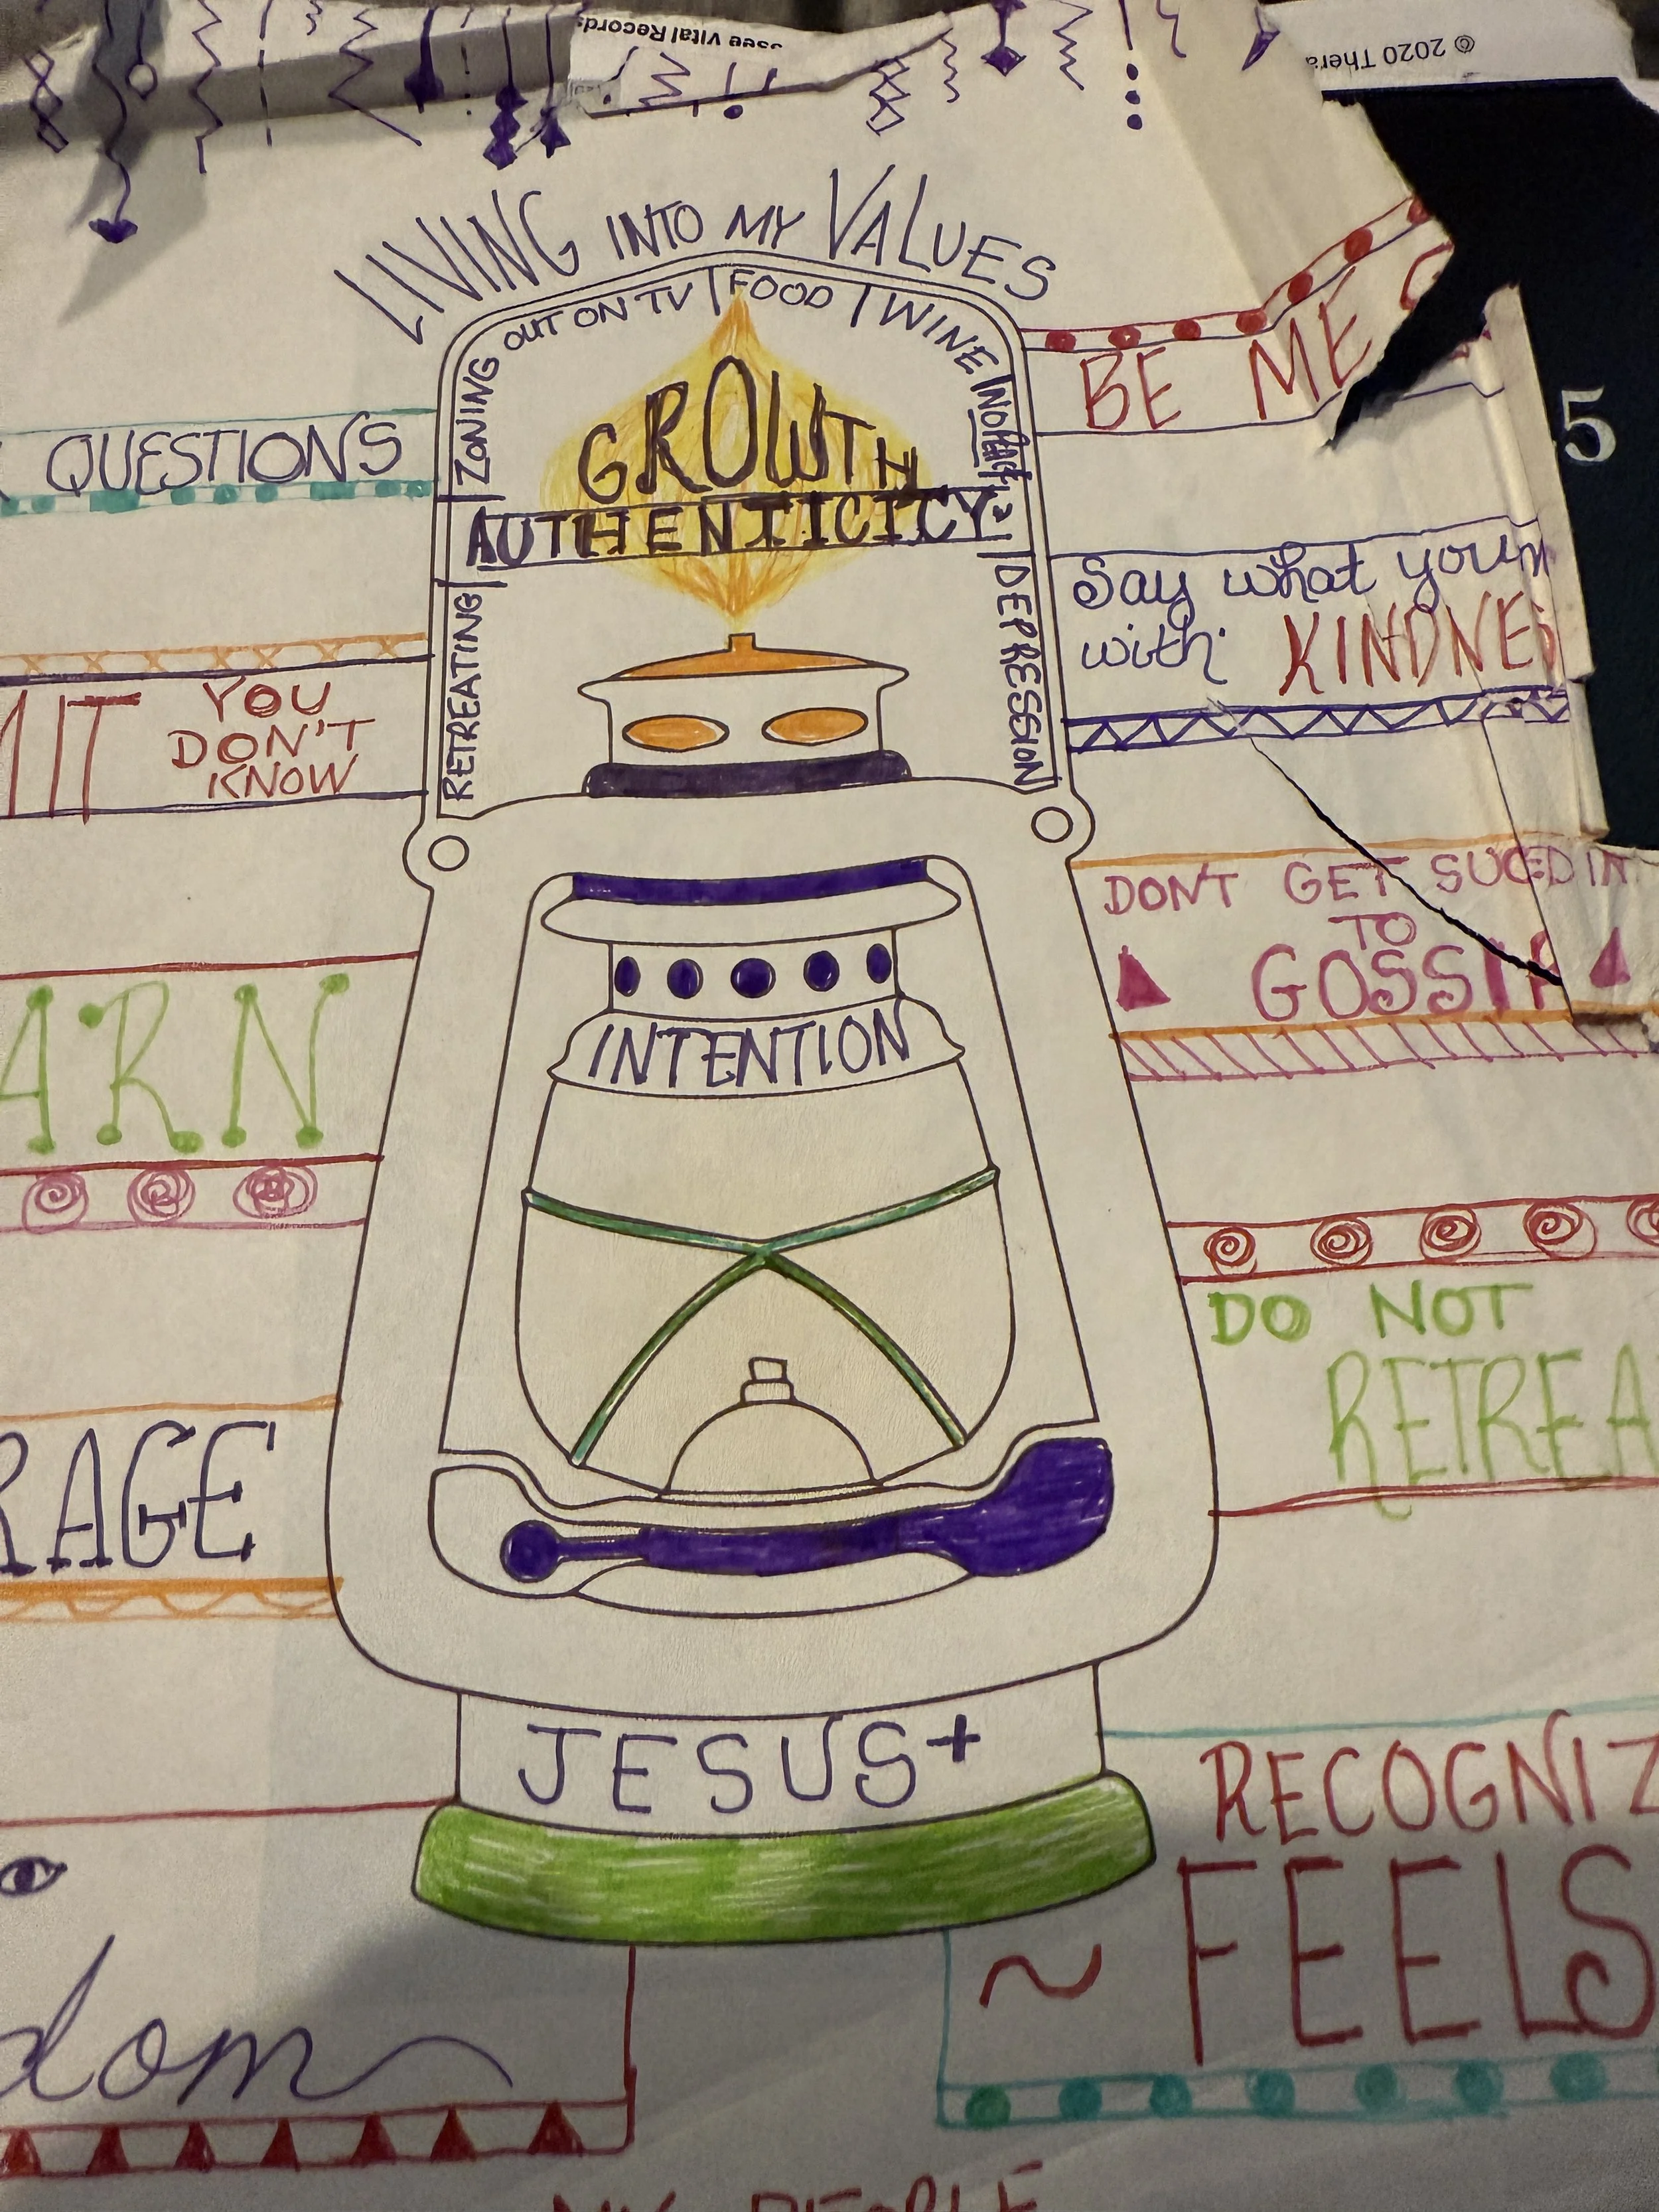 ssee Vital Records
© 2020 Thera
LIVING INTO MY VALUES
ZONING OUT ON TV | FOOD | WINE
GROWTH
AUTHENTICITY
RETREATING
DEPRESSION
QUESTIONS
MIT YOU
DON'T
KNOW
ARN
RAGE
dom
BE ME
5
Say what you m
with KINDNES
DON'T GET SUCED IN
TO
GOSSIP
DO NOT
RETREA
INTENTION
JESUS+
RECOGNIZ
~ FEELS
MY PEOPLE